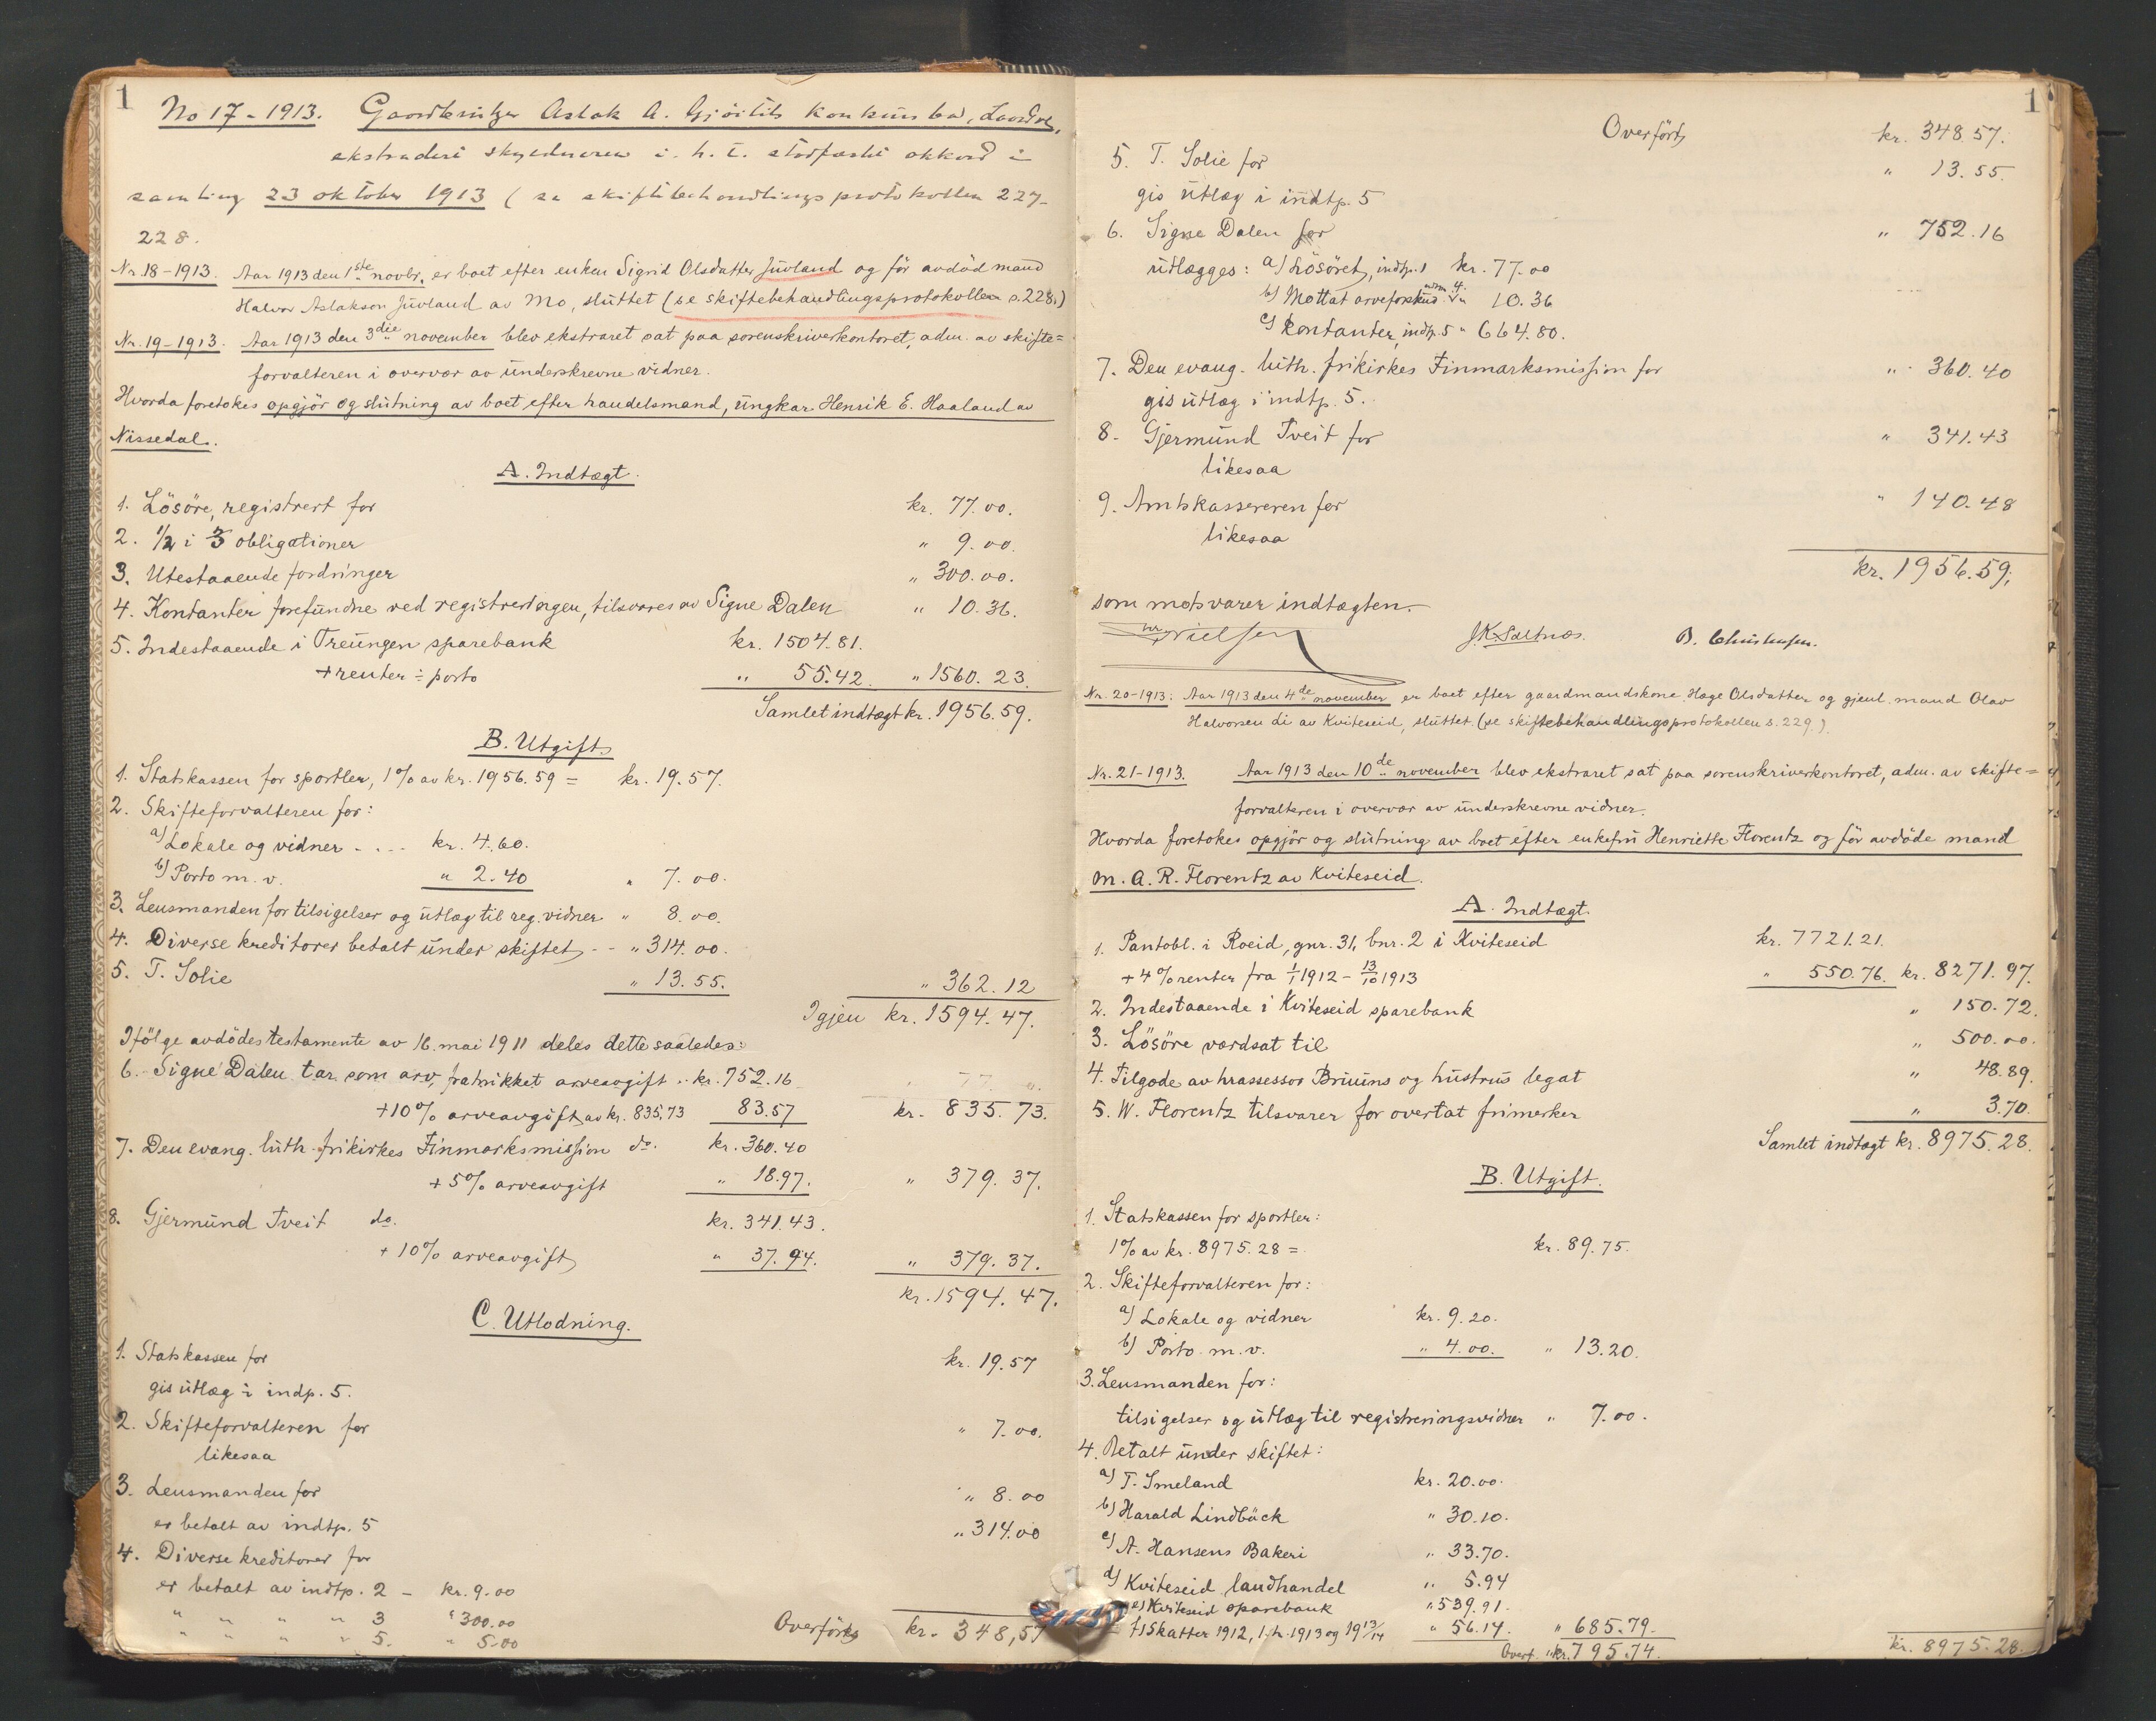 1
No 17 - 1913. Gaardbruker Aslak A. Gjøitils konkursbo, Laardal,
ekstraderes skyldneren i. h. t. stadfæstet akkord i
samling 23 oktober 1913 ( se skiftebehandlingsprotokollen 227-
228.
Nr. 18 - 1913. Aar 1913 den 1ste novbr. er boet efter enken Sigrid Olsdatter Juvland og før avdød mand
Halvor Aslakson Juvland av Mo, sluttet (se skiftebehandlingsprotokollen s. 228.)
Nr. 19 - 1913. Aar 1913 den 3die november blev ekstraret sat paa sorenskriverkontoret, adm. av skifte=
forvalteren i overvær av underskrevne vidner.
Hvorda foretokes opgjör og slutning av boet efter handelsmand, ungkar Henrik E. Haaland av
Nissedal.
A. Indtægt.
1. Lösöre, registrert for kr. 77.00.
2. 1/2 i 3 obligationer " 9.00.
3. Utestaaende fordringer " 300.00.
4. Kontanter forefundne ved registreringen, tilsvares av Signe Dalen " 10.36.
5. Indestaaende i Treungen sparebank kr. 1504.81.
+ renter ÷ porto " 55.42. " 1560.23.
Samlet indtægt kr. 1956.59.
B. Utgift
1. Statskassen for sportler, 1% av kr. 1956.59 = kr. 19.57.
2. Skifteforvalteren for:
a) Lokale og vidner - . . - kr. 4.60.
b) Porto m. v. " 2.40 " 7.00.
3. Lensmanden for tilsigelser og utlæg til reg. vidner " 8.00.
4. Diverse kreditorer betalt under skiftet - - " 314.00.
5. T. Solie " 13.55. " 362.12
Igjen kr. 1594.47.
Ifölge avdödes testamente av 16. mai 1911 deles dette saaledes:
6. Signe Dalen tar som arv, fratrukket arveavgift .. kr. 752.16
+ 10% arveavgift av kr. 835,73 83.57 kr. 835.73.
7. Den evang. luth. frikirkes Finmarksmission do. kr. 360.40
+ 5% arveavgift " 18.97. " 379.37.
8. Gjermund Tveit do. kr. 341.43.
+ 10% arveavgift " 37.94. " 379.37.
kr. 1594.47.
C. Utlodning.
1. Statskassen for kr. 19.57
gis utlæg i indp. 5.
2. Skifteforvalteren for " 7.00.
likesaa
3. Lensmanden for " 8.00
er betalt av indtp. 5
" 314.00
4. Diverse kreditorer for
er betalt av indtp. 2 - kr. 9.00
" " " " 3 " 300.00
" " " " 5. " 5.00
Overföres kr. 348,57
1
Overfört kr. 348.57.
5. T. Solie for " 13.55.
gis utlæg i indtp. 5
6. Signe Dalen for " 752.16
utlægges: a) Lösöret, indtp. 1 kr. 77.00
b) Mottat arveforskud indtp. 4. " 10.36
c) Kontanter, indtp. 5 " 664.80.
7. Den evang. luth. frikirkes Finmarksmission for " 360.40
gis utlæg i indtp. 5.
8. Gjermund Tveit for " 341.43
likesaa
9. Amtskassereren for " 140.48
likesaa
kr. 1956.59,
som motsvarer indtægten.
Nielsen J.K. Saltnæs. B. Christensen.
Nr. 20 - 1913. Aar 1913 den 4de november er boet efter gaardmandskone Hæge Olsdatter og gjenl. mand Olav
Halvorsen Li av Kviteseid, sluttet. (se skiftebehandlingsprotokollen s. 229.)
Nr. 21 - 1913. Aar 1913 den 10de november blev ekstraret sat paa sorenskriverkontoret, adm. av skifte=
forvalteren i overvær av underskrevne vidner.
Hvorda foretokes opgjör og slutning av boet efter enkefru Henriette Florentz og för avdöde mand
M. A. R. Florentz av Kviteseid.
A. Indtægt.
1. Pantobl. i Roeid, gnr. 31, bnr. 2 i Kviteseid kr. 7721.21.
+ 4% renter fra 1/1 1912 - 13/10 1913 " 550.76. kr. 8271.97.
2. Indestaaende i Kviteseid sparebank " 150.72.
3. Lösöre værdsat til " 500.00.
4. Tilgode av hrassessor Bruuns og hustrus legat " 48.89.
5. W. Florentz tilsvarer for overtat frimerker " 3.70.
Samlet indtægt kr. 8975.28.
B. Utgift.
1. Statskassen for sportler:
1% av kr. 8975.28 = kr. 89.75.
2. Skifteforvalteren for:
a) Lokale og vidner kr. 9.20.
b) Porto m. v. " 4.00. " 13.20.
3. Lensmanden for:
tilsigelser og utlæg til registreringsvidner " 7.00.
4. Betalt under skiftet:
a) T. Smeland kr. 20.00.
b) Harald Lindbäck " 30.10.
c) A. Hansens Bakeri " 33.70.
d) Kviteseid landhandel " 5.94
e) Kviteseid sparebank " 539.91.
f) Skatter 1912, 1. h. 1913 og 1913/14 " 56.14. " 685.79.
Overf. kr. 795.74. kr. 8975.28.